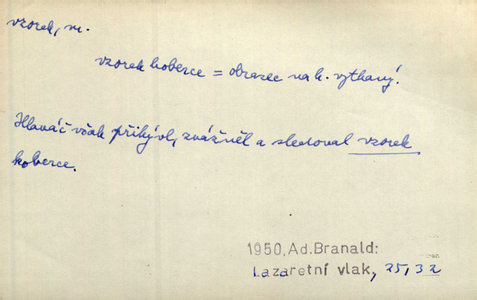 vzorek, m.
vzorek koberce = obrazec na k. vytkaný.
Hlaváč však přikývl, zvážněl a sledoval vzorek
koberce.
1950, Ad. Branald:
Lazaretní vlak, 25, 32